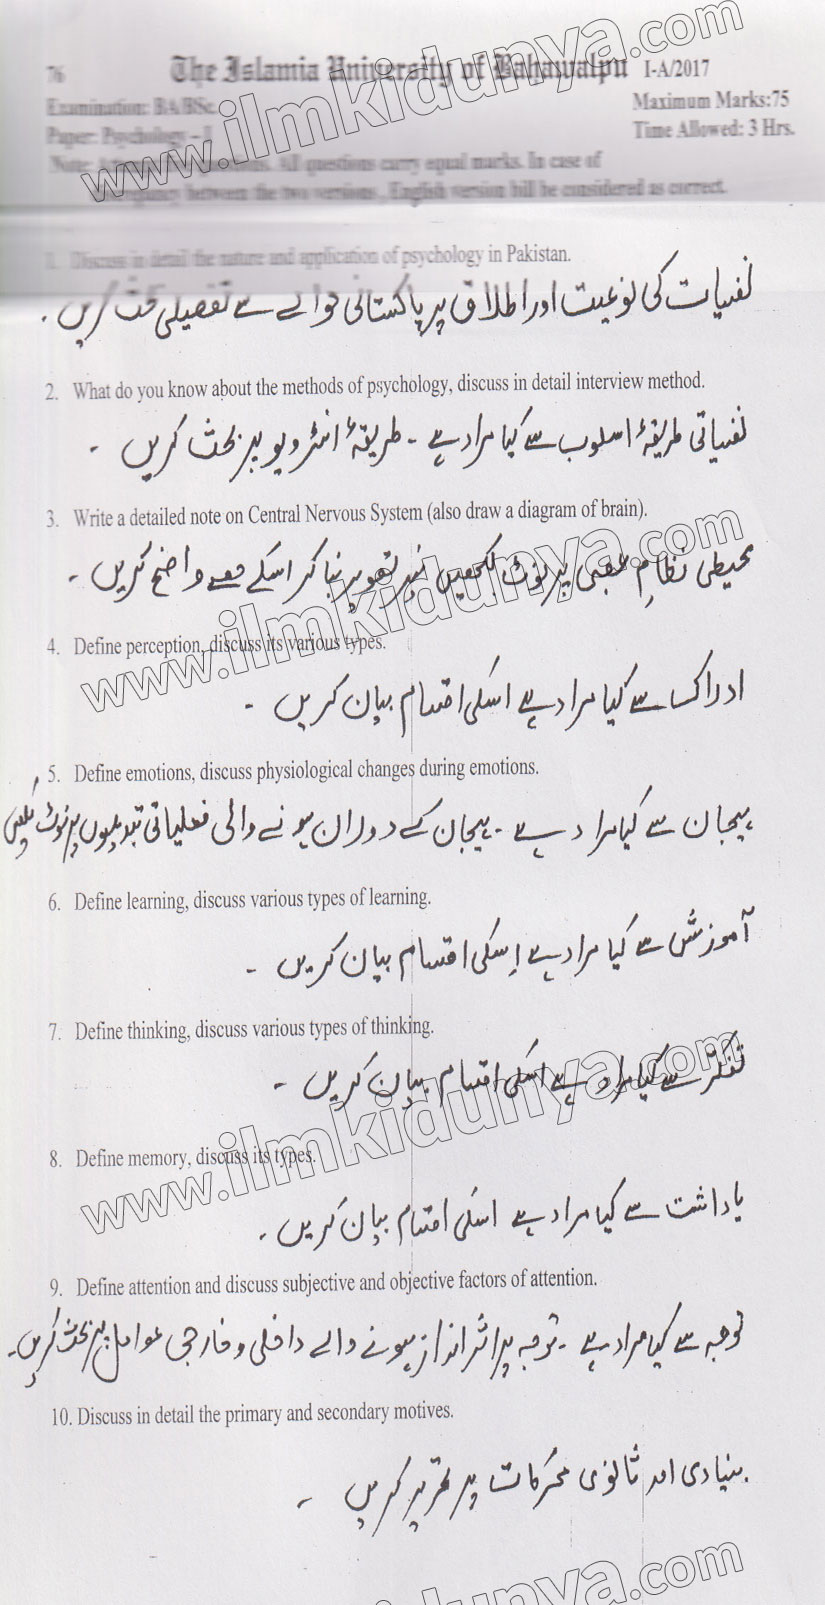 76 The Islamia University of Bahawalpu I-A/2017
Examination: BA/BSc. Maximum Marks:75
Paper: Psychology – I Time Allowed: 3 Hrs.
Note: questions. All questions carry equal marks. In case of
between the two versions , English version bill be considered as correct.
1. Discuss in detail the nature and application of psychology in Pakistan.
نفسیات کی نوعیت اور اطلاق پر پاکستانی حوالے سے تفصیلی بحث کریں ۔
2. What do you know about the methods of psychology, discuss in detail interview method.
نفسیاتی طریقۂ اسلوب سے کیا مراد ہے ۔ طریقۂ انٹرویو پر بحث کریں ۔
3. Write a detailed note on Central Nervous System (also draw a diagram of brain).
محیطی نظامِ عصبی پر نوٹ لکھیں نیز تصویر بنا کر اسکے حصے واضح کریں ۔
4. Define perception, discuss its various types.
ادراک سے کیا مراد ہے اسکی اقسام بیان کریں ۔
5. Define emotions, discuss physiological changes during emotions.
ہیجان سے کیا مراد ہے ۔ ہیجان کے دوران ہونے والی فعلیاتی تبدیلیوں پر نوٹ لکھیں
6. Define learning, discuss various types of learning.
آموزش سے کیا مراد ہے اِسکی اقسام بیان کریں ۔
7. Define thinking, discuss various types of thinking.
تفکر سے کیا مراد ہے اسکی اقسام بیان کریں ۔
8. Define memory, discuss its types.
یاداشت سے کیا مراد ہے اسکی اقسام بیان کریں ۔
9. Define attention and discuss subjective and objective factors of attention.
توجہ سے کیا مراد ہے ۔ توجہ پر اثر انداز ہونے والے داخلی و خارجی عوامل پر بحث کریں ۔
10. Discuss in detail the primary and secondary motives.
بنیادی اور ثانوی محرکات پر تحریر کریں ۔
www.ilmkidunya.com
www.ilmkidunya.com
www.ilmkidunya.com
kidunya.com